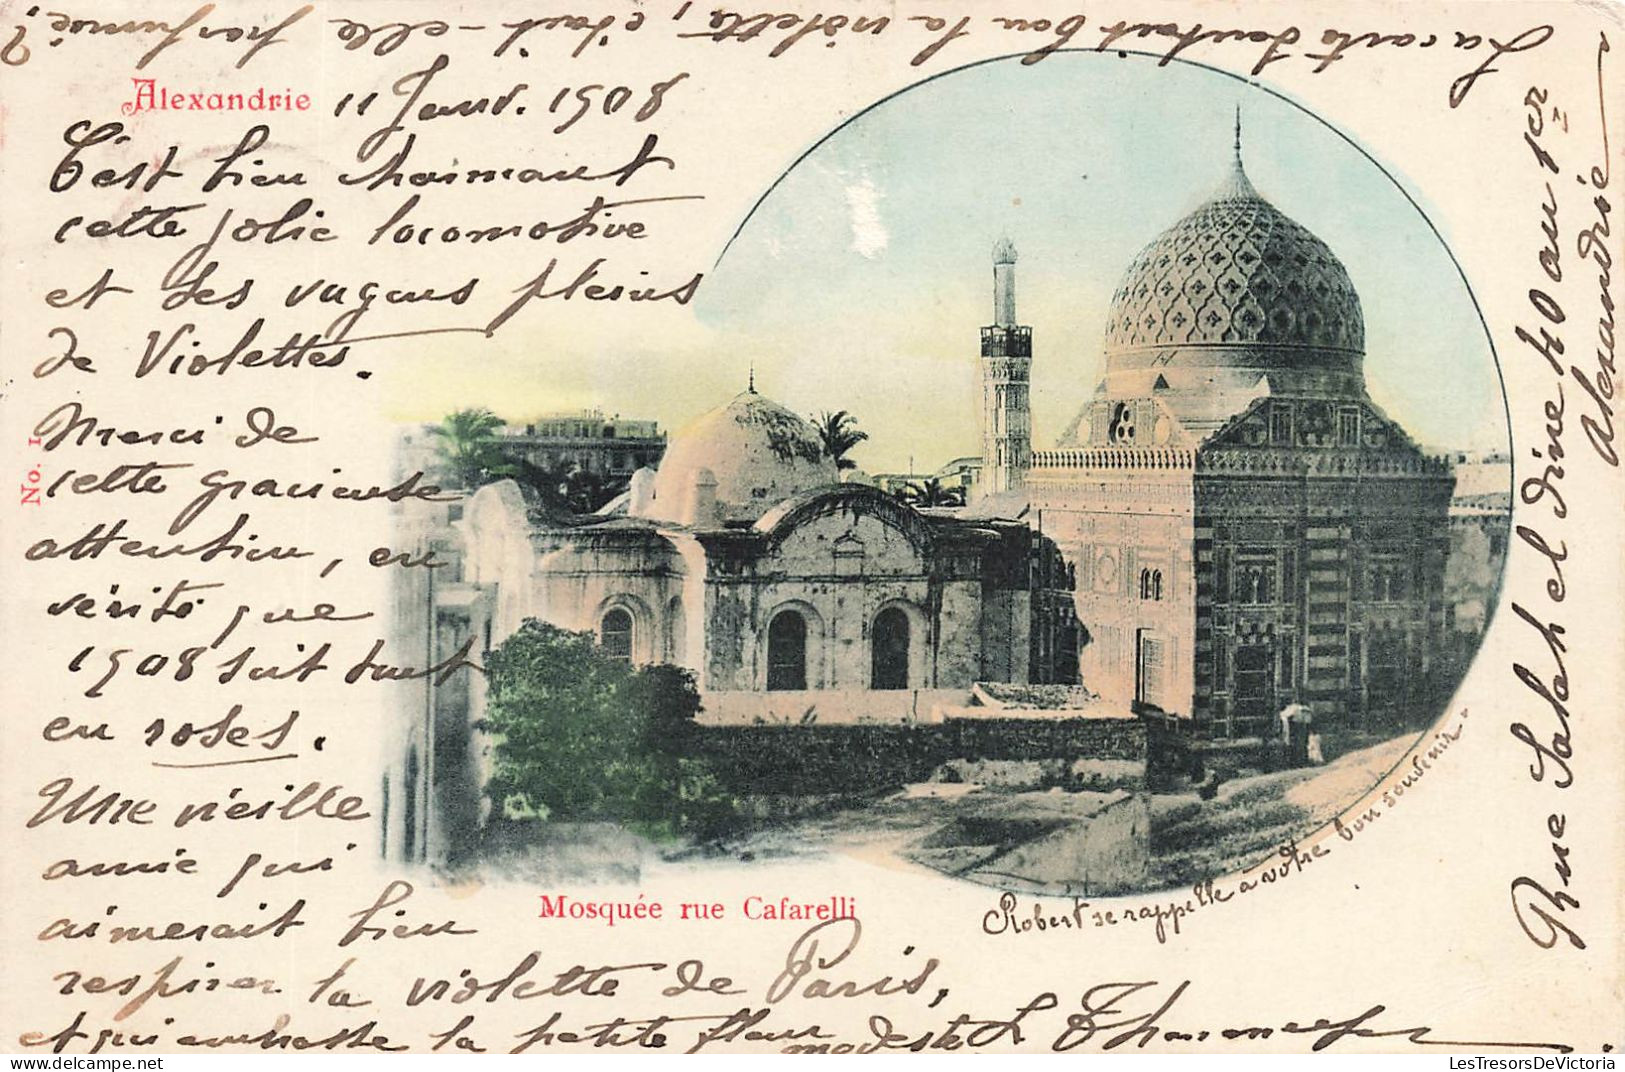 La carte sentait bon la violette, était-elle parfumée?
Alexandrie
11 Janv. 1908
C'est bien charmant
cette jolie locomotive
et ses vagons pleins
de Violettes.
Merci de
cette gracieuse
attention, en
vérité que
1908 soit tout
en roses.
Une vieille
amie qui
aimerait bien
respirer la violette de Paris,
et qui embrasse la petite fleur
modeste
No. 1
Mosquée rue Cafarelli
Robert se rappelle à votre bon souvenir.
Rue Salah el dine 40 au 1er
Alexandrie
LesTresorsDeVictoria